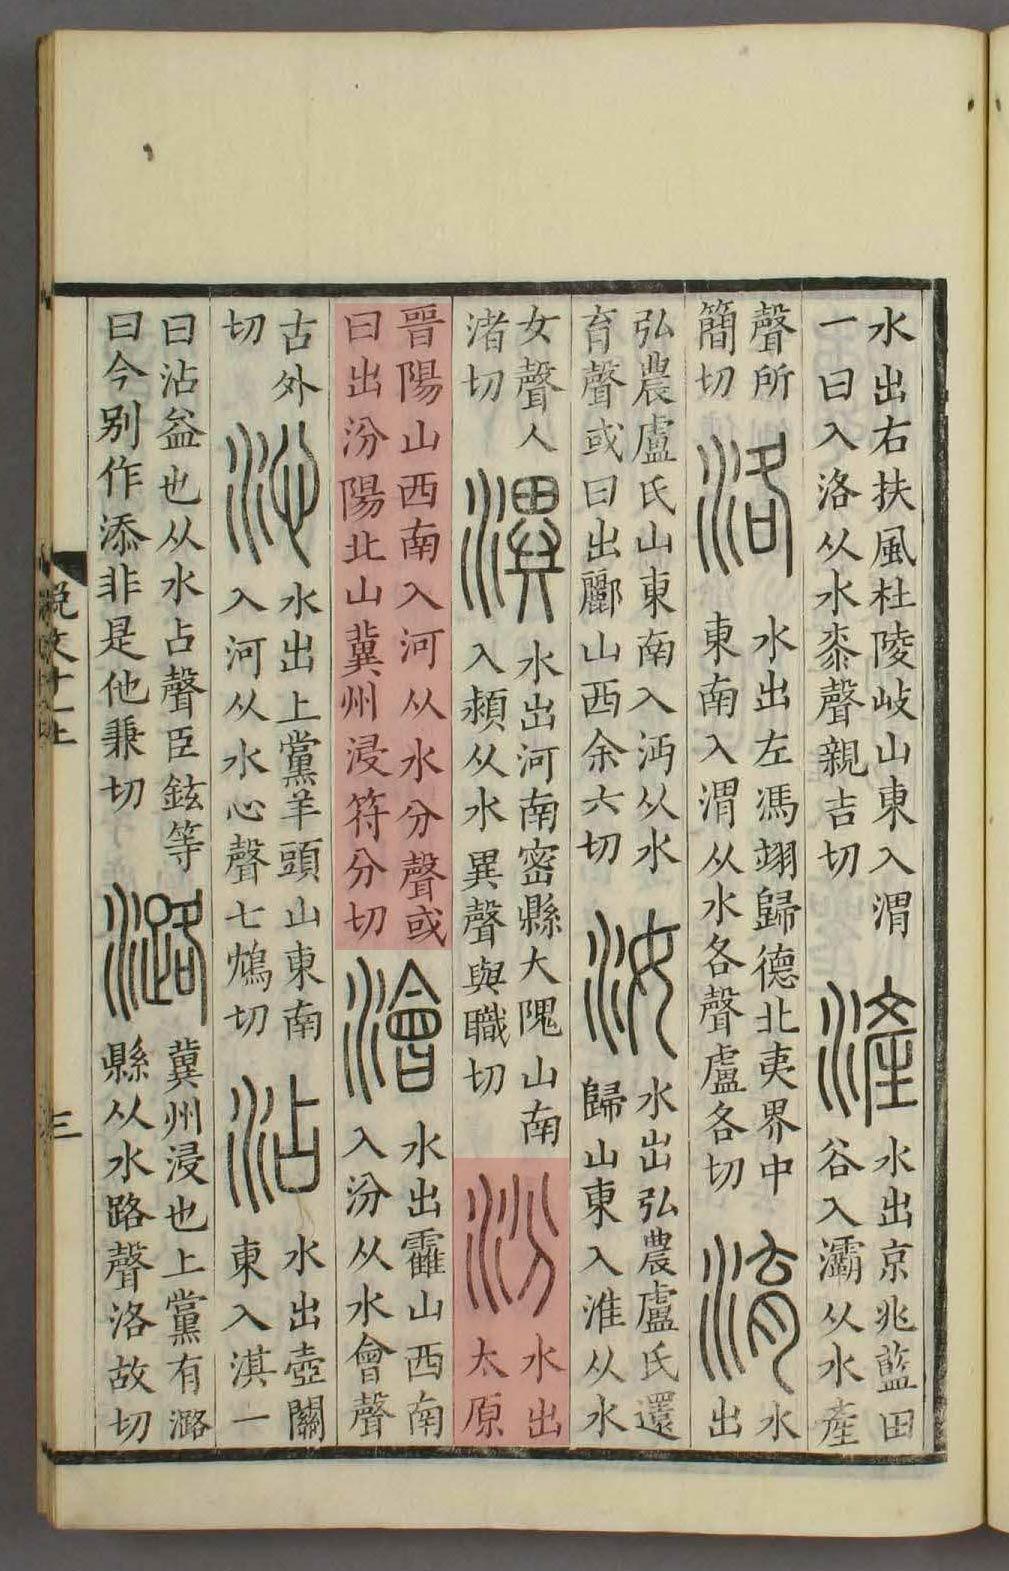 水出右扶風杜陵岐山東入渭
一曰入洛从水桼聲親吉切
滻
水出京兆藍田
谷入灞从水產
聲所
簡切
洛
水出左馮翊歸德北夷界中
東南入渭从水各聲盧各切
淯
水
出
弘農盧氏山東南入沔从水
育聲或曰出酈山西余六切
汝
水出弘農盧氏還
歸山東入淮从水
女聲人
渚切
潩
水出河南密縣大隗山南
入潁从水異聲與職切
汾
水出
太原
晉陽山西南入河从水分聲或
曰出汾陽北山冀州浸符分切
澮
水出靃山西南
入汾从水會聲
古外
切
沁
水出上黨羊頭山東南
入河从水心聲七鴆切
沾
水出壺關
東入淇一
曰沾益也从水占聲臣鉉等
曰今别作添非是他兼切
潞
冀州浸也上黨有潞
縣从水路聲洛故切
說文十一上
三